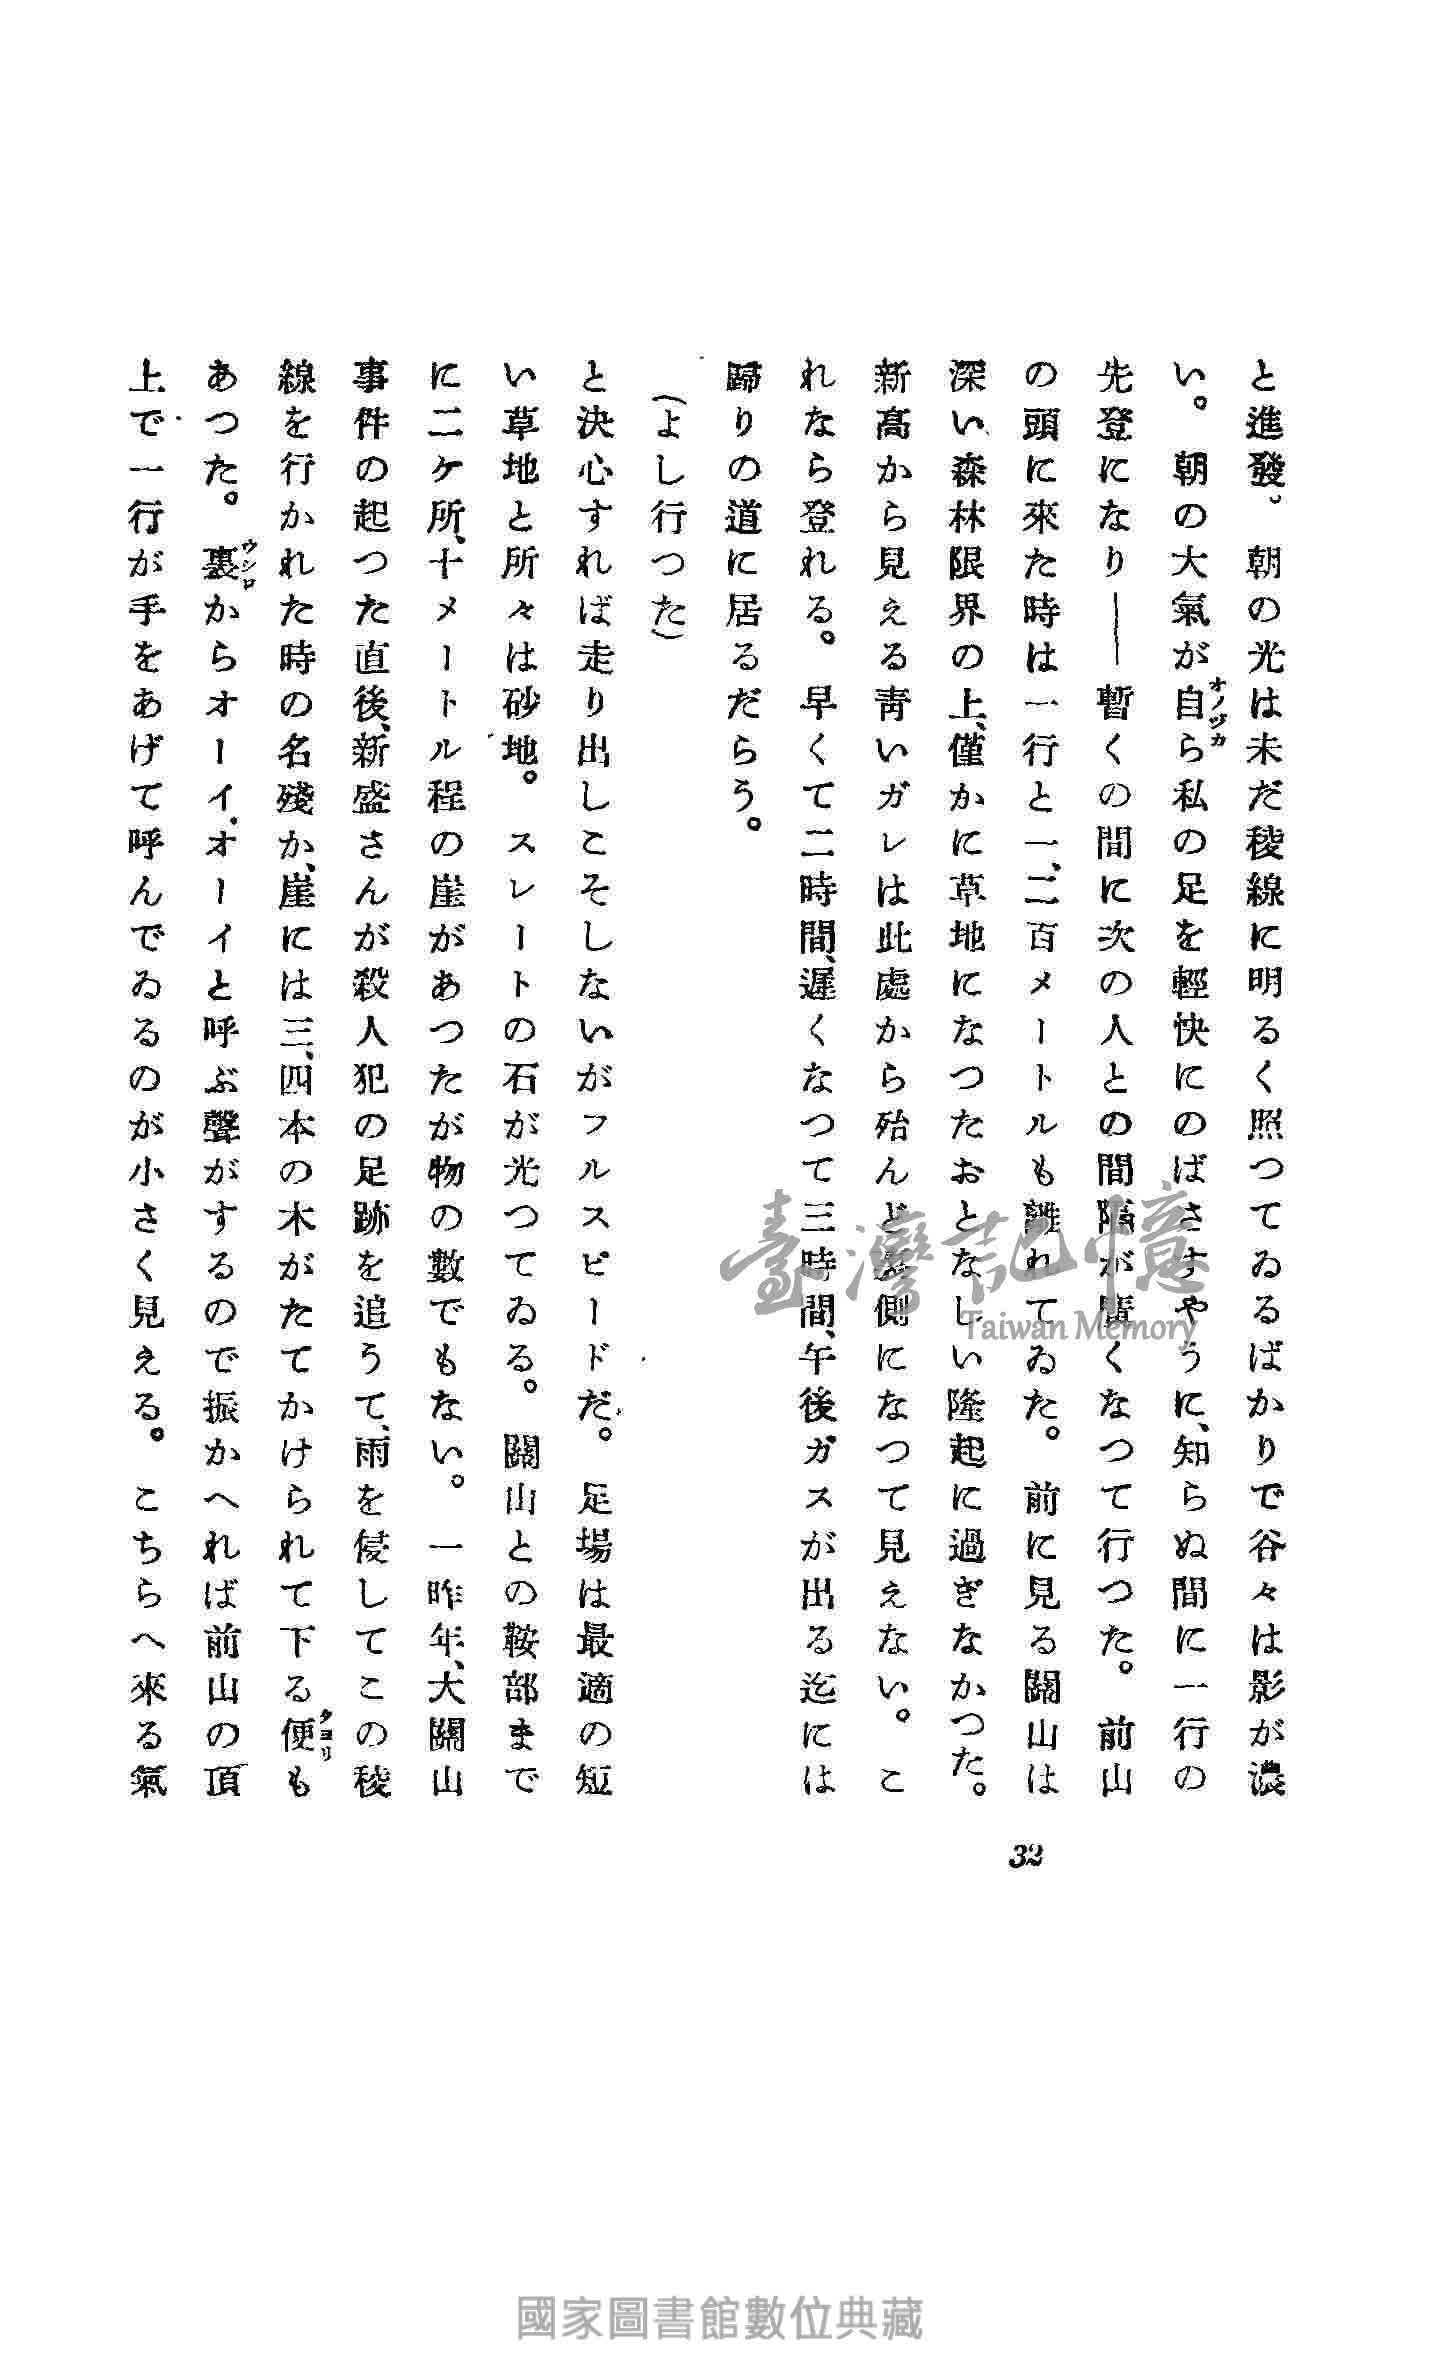 と進發。朝の光は未だ稜線に明るく照つてゐるばかりで谷々は影が濃
い。朝の大氣が自ら私の足を輕快にのばさすやうに、知らぬ間に一行の
オノヅカ
先登になり——暫くの間に次の人との間隔が廣くなつて行つた。前山
の頭に來た時は一行と一、二百メートルも離れてゐた。前に見る關山は
深い森林限界の上、僅かに草地になつたおとなしい隆起に過ぎなかつた。
新高から見える靑いガレは此處から殆んど側になつて見えない。こ
れなら登れる。早くて二時間、遲くなつて三時間、午後ガスが出る迄には
歸りの道に居るだらう。
(よし行つた)
と決心すれば走り出しこそしないがフルスピードだ。足場は最適の短
い草地と所々は砂地。スレートの石が光つてゐる。關山との鞍部まで
に二ケ所、十メートル程の崖があつたが物の數でもない。一昨年、大關山
事件の起つた直後、新盛さんが殺人犯の足跡を追うて、雨を侵してこの稜
線を行かれた時の名殘か、崖には三、四本の木がたてかけられて下る便も
タヨリ
あつた。裏からオーイ.オーイと呼ぶ聲がするので振かへれば前山の頂
ウシロ
上で一行が手をあげて呼んでゐるのが小さく見える。こちらへ來る氣
32
臺灣記憶
Taiwan Memory
國家圖書館數位典藏